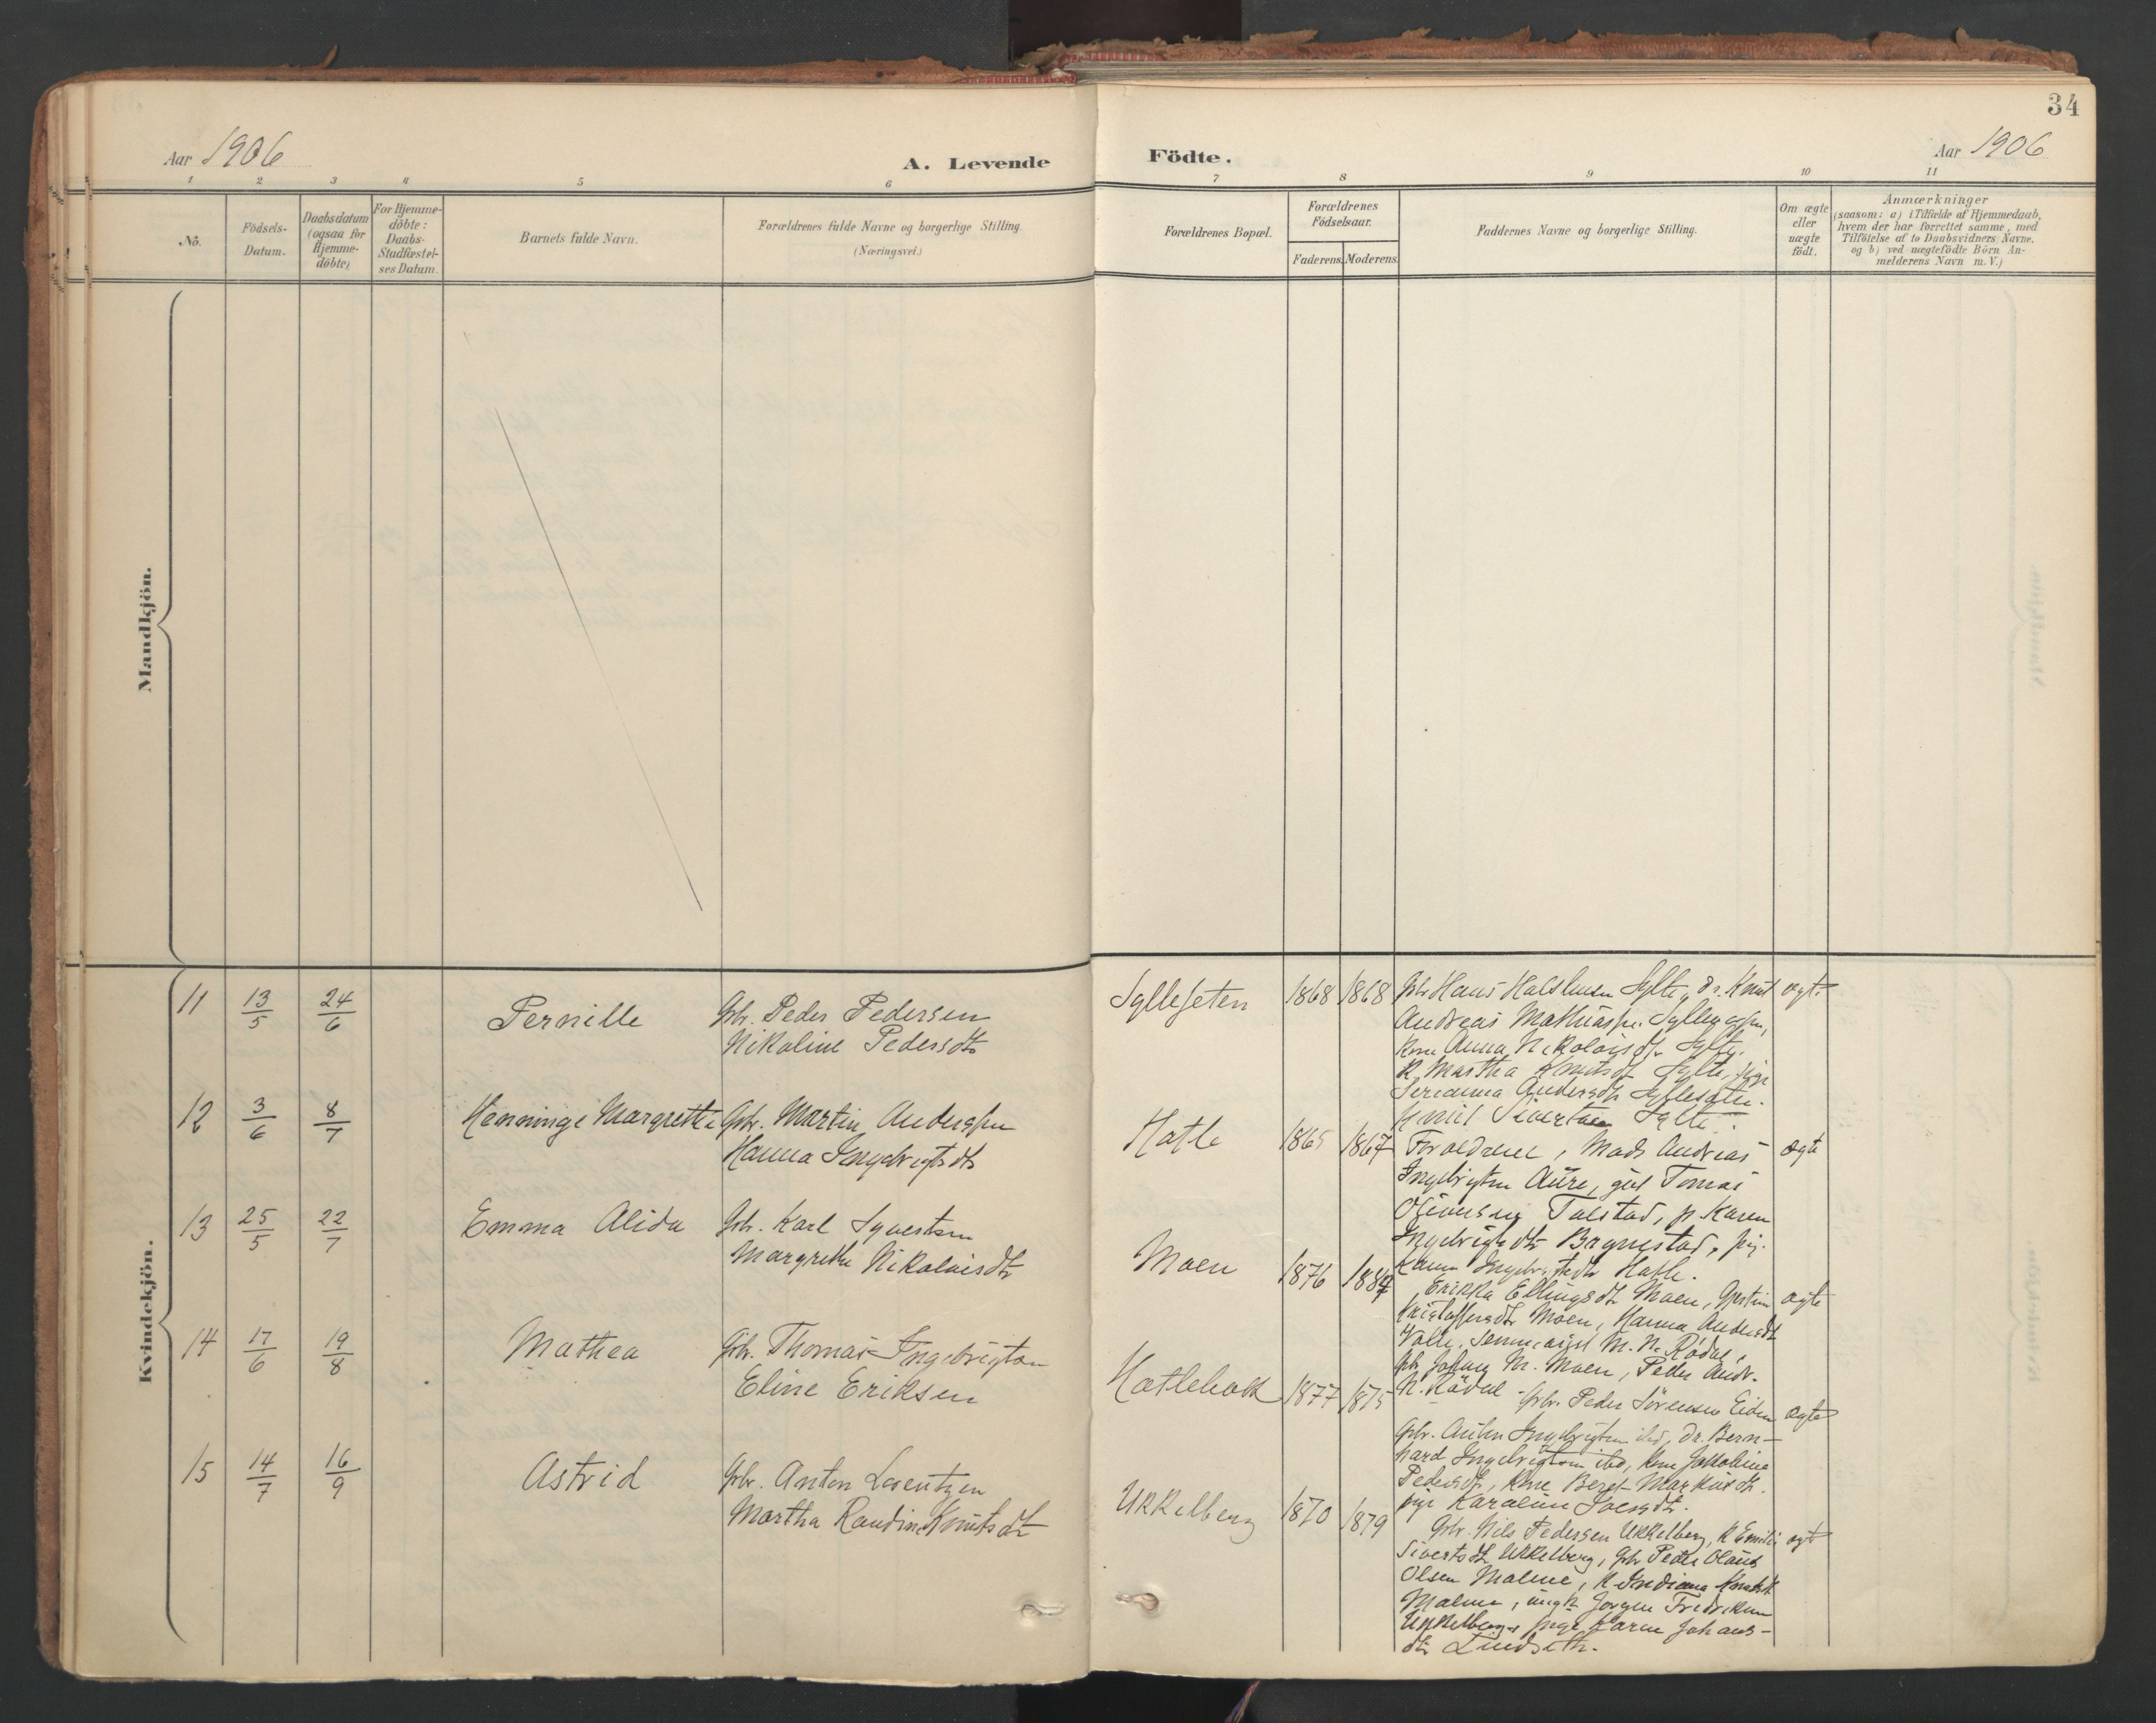 34
Aar 1906
A. Levende
Födte.
Aar 1906
1 2 3 4 5 6 7 8 9 10 11
No.
Födsels-
Datum.
Daabsdatum
(ogsaa for
Hjemme-
döbte)
For Hjemme-
döbte:
Daabs-
Stadfæstel-
ses Datum.
Barnets fulde Navn.
Forældrenes fulde Navne og borgerlige Stilling.
(Næringsvei.)
Forældrenes Bopæl.
Forældrenes
Födselsaar.
Faderens. Moderens.
Faddernes Navne og borgerlige Stilling.
Om ægte
eller
uægte
födt.
Anmærkninger
(saasom: a) i Tilfælde af Hjemmedaab,
hvem der har forrettet samme, med
Tilföielse af to Daabsvidners Navne.
og b) ved uægtefödte Börn An-
melderens Navn m. V.)
Mandkjön.
Kvindekjön.
11 13/5 24/6 Pernille Gbr. Peder Pedersen
Nikoline Pedersdtr
Sylleseten 1868 1868
Gbr Hans Halshusen Sylte, dr. Knut
Andreas Mathiasen
Kone Anna Nikolaisdtr Sylte.
K. Martha Knutsdtr Sylte, pige
Serianna Andersdtr Syllesæten.
Sivertsen Sylte.
ægte
12 3/6 8/7 Henninge Margrethe Gbr. Martin Anderssen
Hanna Ingebrigtsdtr
Hatle 1865 1867
Forældrene, Mads Andreas
Ingebrigtsen Aure, gut Tomas
Talstad, p. Karen
Ingebrigtsdtr Brynestad, pig.
Ingebrigtsdtr Hatle.
ægte
13 25/5 22/7 Emma Alida Gbr. Karl Syvertsen
Margrethe Nikolaisdtr
Moen 1876 1884
Erikka Ellingsdtr Moen,
Kristoffersdtr Moen, Hanna Andersdtr
M. N. Rödal,
Gbr Johan M. Moen, Peder Andr.
N. Rödal.
ægte
14 17/6 19/8 Mathea Gbr. Thomas Ingebrigtsen
Eline Eriksen
Hatlebakk 1877 1875
Gbr. Peder Sörensen Eidem
Gbr. Anton Ingebrigtsen ibd, Dr. Bern-
hard Ingebrigtsen ibd, Kone Jakobine
Pedersdtr, Kone Beret Markusdtr.
pige Karoline
ægte
15 14/7 16/9 Astrid Gbr. Anton Lorentzen
Martha Raudine Knutsdtr
Ukkelberg 1870 1879
Gbr. Nils Pedersen Ukkelberg, K Emilie
Sivertsdtr Ukkelberg, Gbr Peder Olaus
Olsen Malme, K Indiana Knutsdtr
Malme, ungk. Jørgen Fredriksen
Ukkelberg, pige Karen Johans-
dtr Lindseth.
ægte